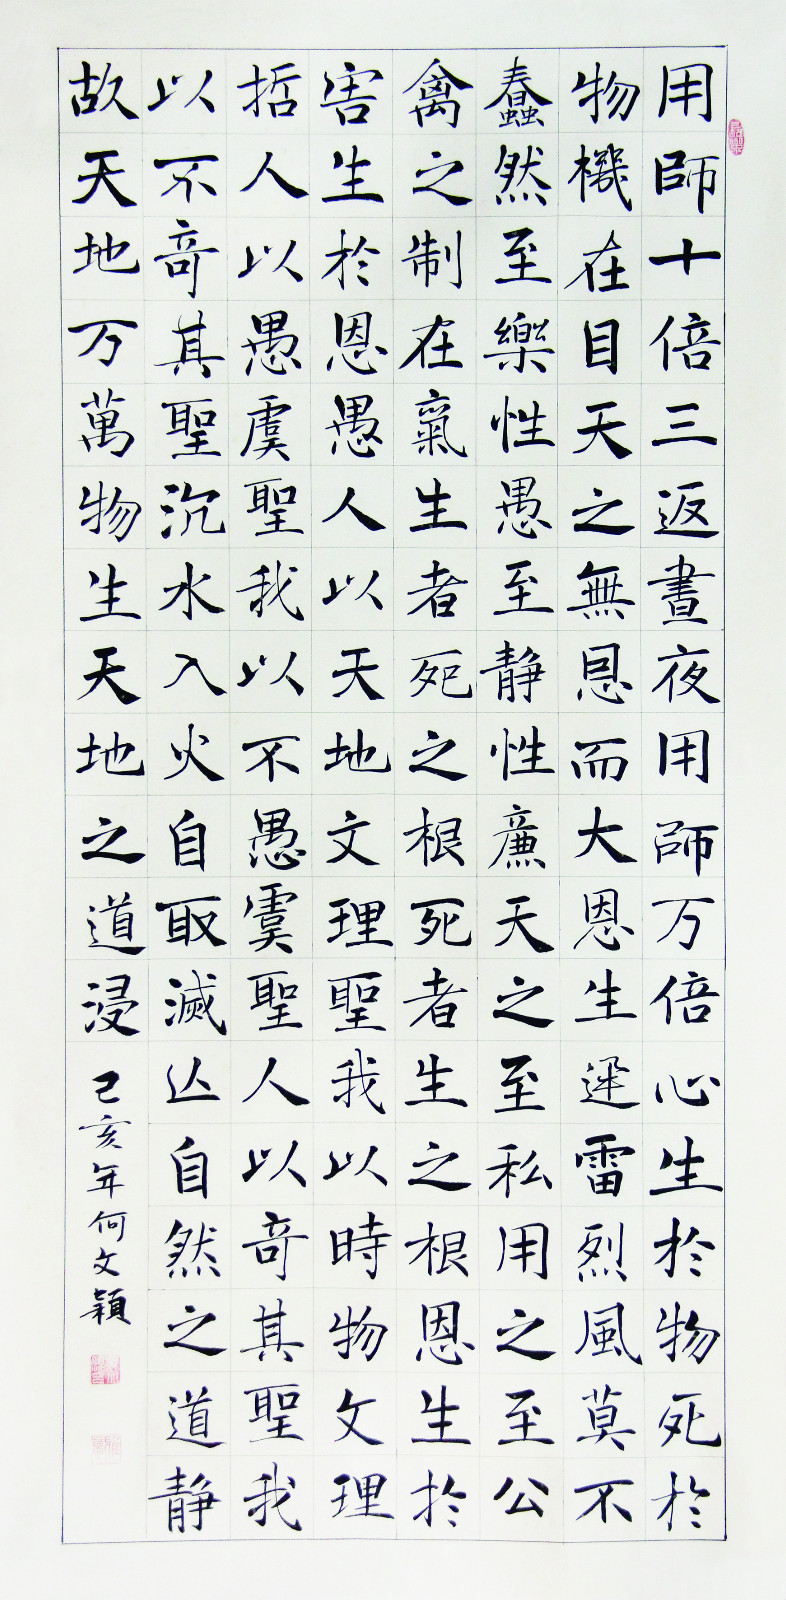 用師十倍三返晝夜用師万倍心生於物死於
物機在目天之無恩而大恩生迅雷烈風莫不
蠢然至樂性愚至静性廉天之至私用之至公
禽之制在氣生者死之根死者生之根恩生於
害生於恩愚人以天地文理聖我以時物文理
哲人以愚虞聖我以不愚虞聖人以奇其聖我
以不奇其聖沉水入火自取滅亡自然之道静
故天地万萬物生天地之道浸
己亥年何文穎